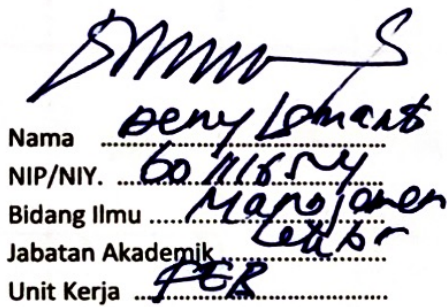 Nama Deny
NIP/NIY.
Bidang Ilmu Manajemen
Jabatan Akademik Lektor
Unit Kerja FEB